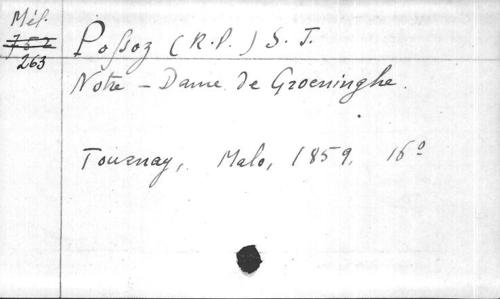 Mél.
752
263
Possoz (R.P.) S.J.
Notre-Dame de Groeninghe.
Tournay, Malo, 1859, 16°